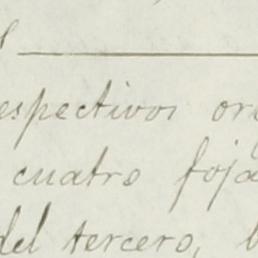 espectivos or
cuatro foja
del tercero,